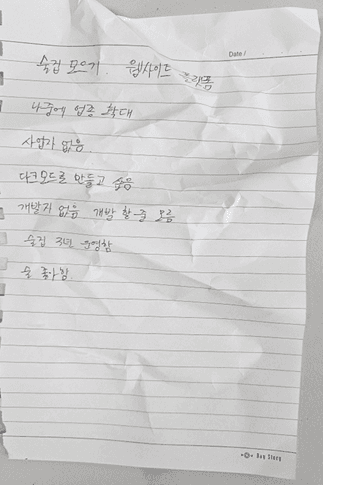 Date /
술집 모으기. 웹사이트 플랫폼
나중에 업종 확대
사업가 없음.
다크모드로 만들고 싶음
개발자 없음 개발 할 줄 모름
술집 3년 운영함
술 좋아함
Day Story